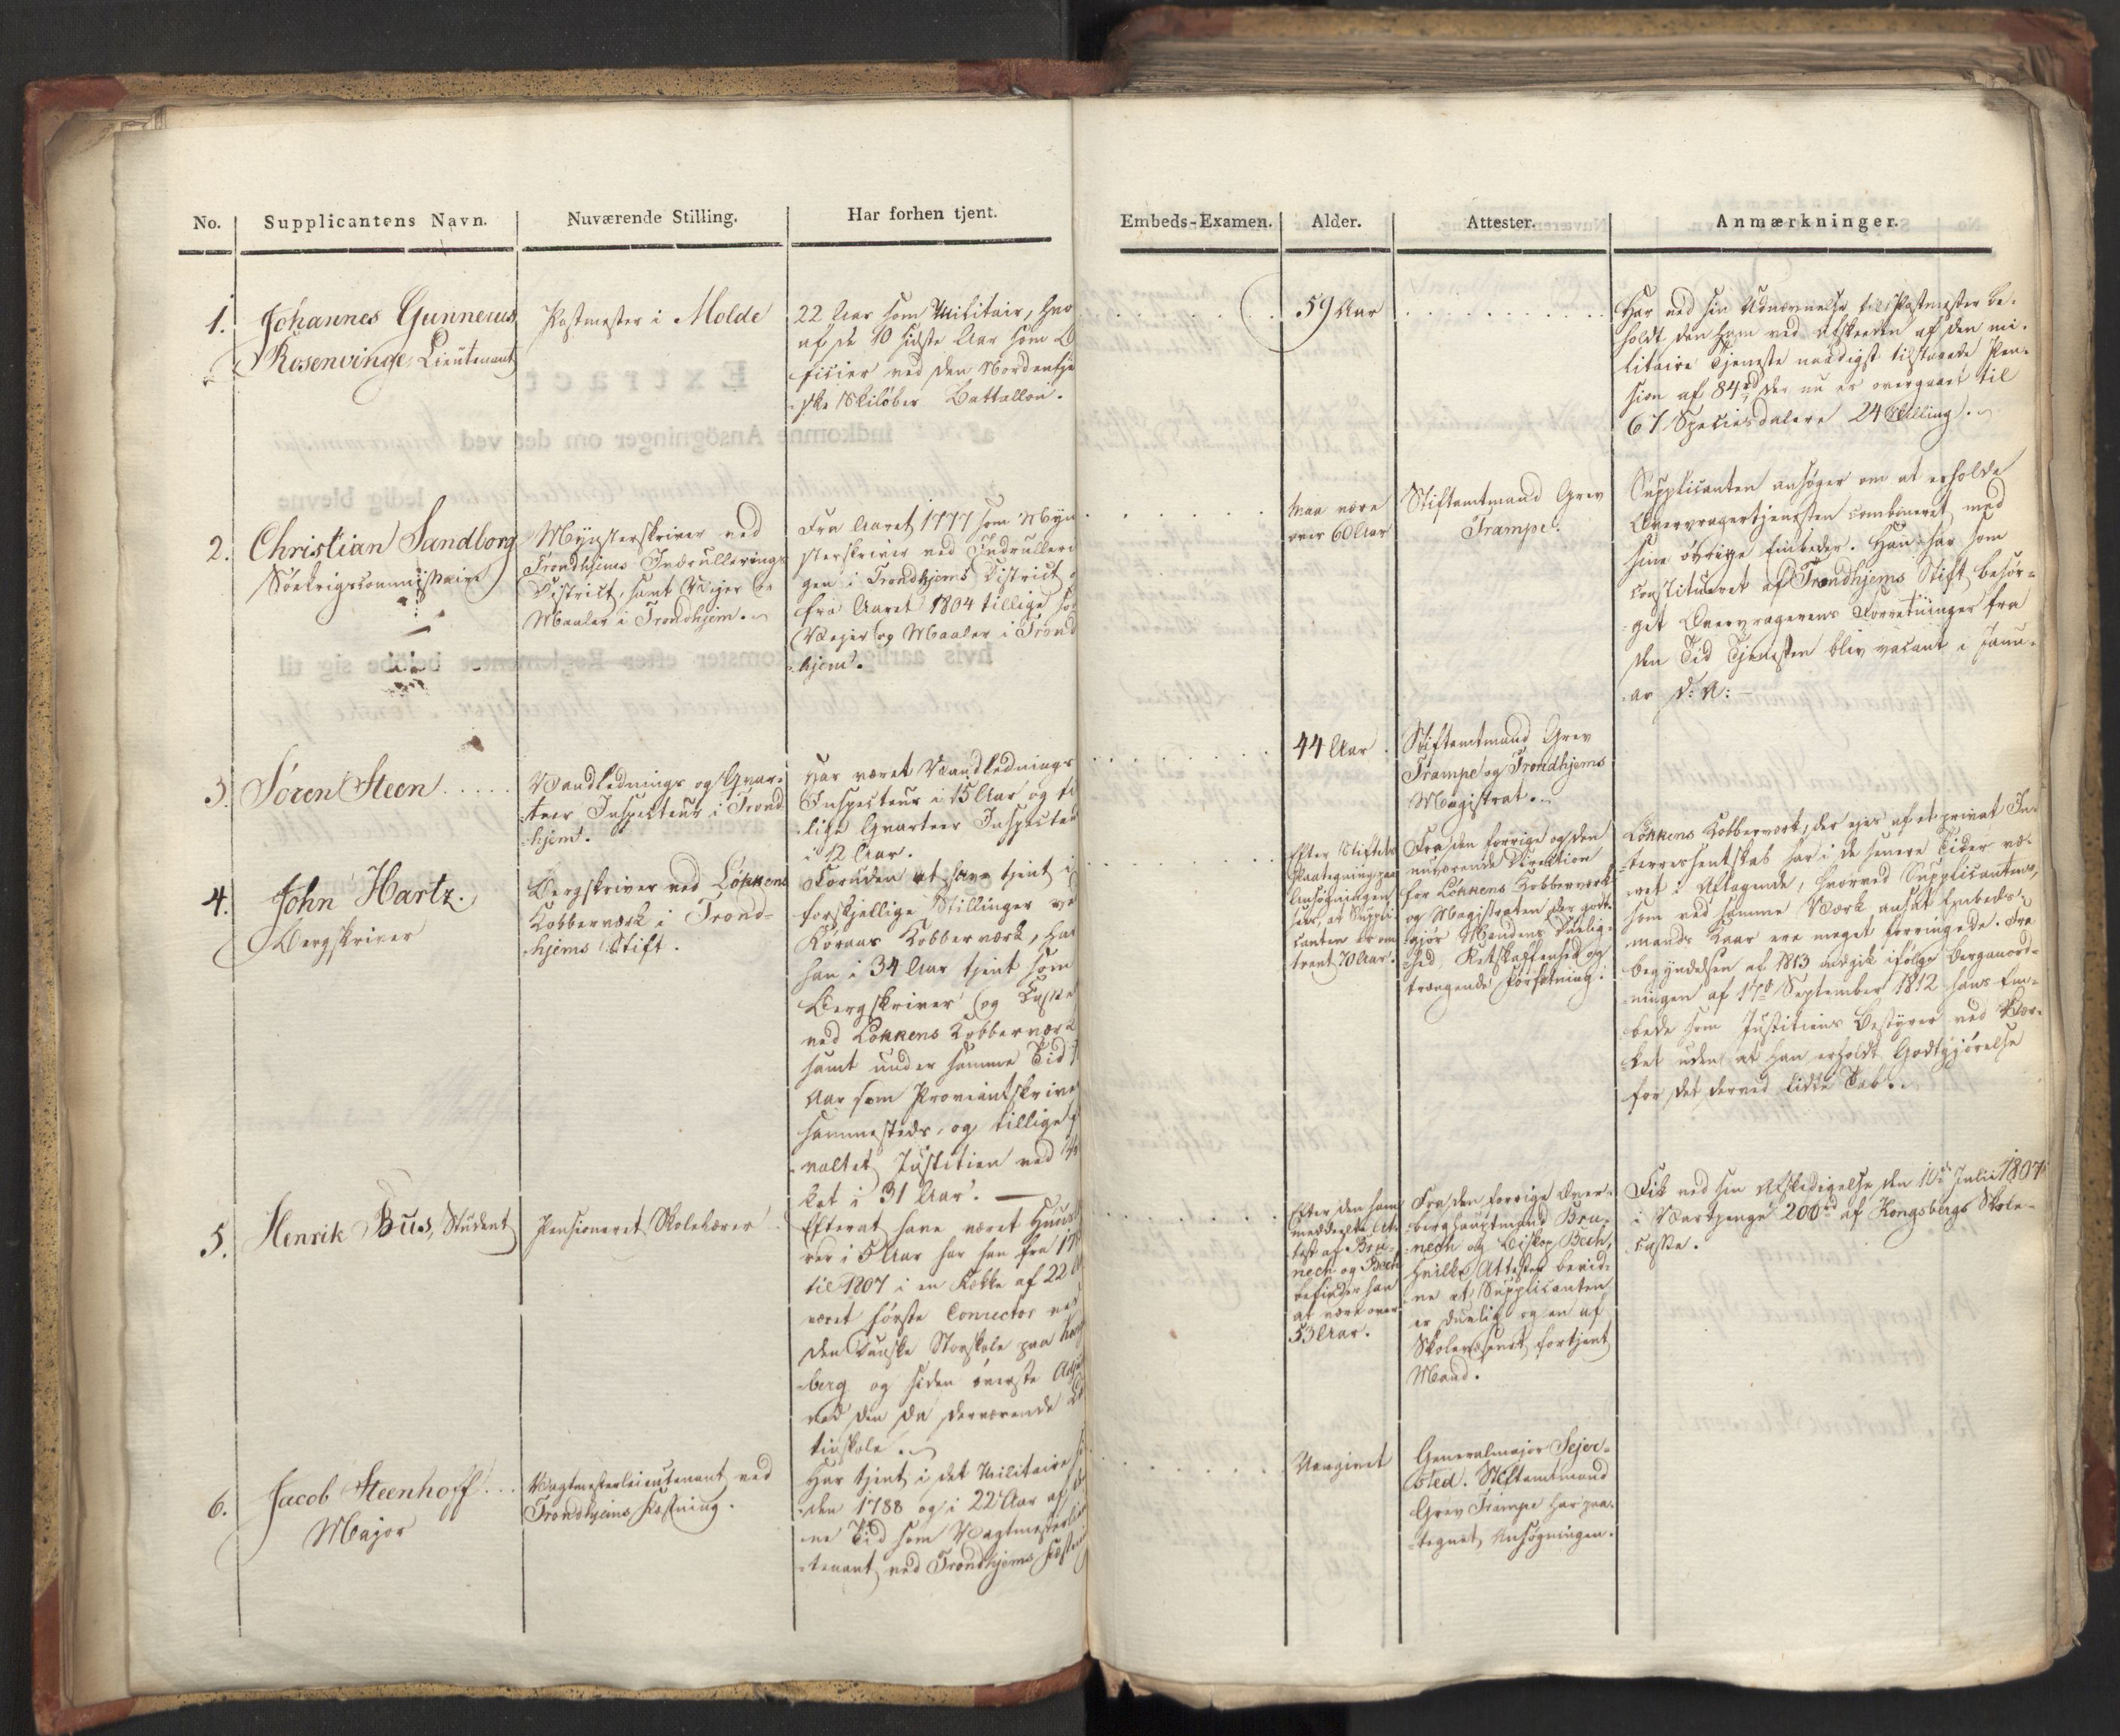 No.
Supplicantens Navn.
Nuværende Stilling.
Har forhen tjent.
Embeds-Examen.
Alder.
Attester.
Anmærkninger.
1.
Johannes Gunnerus
Rosenvinge, Lieutenant
Postmester i Molde
22 Aar som Militair, hvor
af de 10 sidste Aar som O
ficier ved den Nordenfje
ske Skiløber Battallon.
59 Aar
Har ved sin Udnævnelse til Postmester be-
holdt den ham ved Afskeden af den mi-
litaire Tjeneste naadigst tilstaaede Pen-
sion af 84 rd der nu er overgaaet til
67 Speciesdalere 24 Skilling.
2.
Christian Sandborg
Söekrigscommissaire
Mynsterskriver ved
Trondhjems Indrullerings
District, samt Vejer og
Maaler i Trondhjem.
Fra Aaret 1777 som Myn
sterskriver ved Indruller
gen i Trondhjems District
fra Aaret 1804 tillige so
Vejer og Maaler i Trond
hjem.
Maa være
over 60 Aar
Stiftamtmand Grev
Trampe.
Supplicanten ansøger om at erholde
Overvragertjenesten combineret med
sine øvrige Embeder. Han har som
constitueret af Trondhjems Stift besør-
get Overvragerens Forretninger fra
den Tid Tjenesten blev vacant i Janu-
ar d: A:
3.
Sören Steen
Vandlednings og Qvar-
teer Inspecteur i Trond
hjem.
Har været Vandlednings
Inspecteur i 15 Aar og ti
lige Qvarteer Inspecteu
i 12 Aar.
44 Aar
Stiftamtmand Grev
Trampe og Trondhjems
Magistrat.
4.
John Hartz.
Bergskriver
Bergskriver ved Løkkens
Kobberværk i Trond-
hjems Stift.
Foruden at have tjent i
forskjellige Stillinger ve
Röraas Kobberværk, har
han i 34 Aar tjent som
Bergskriver og Casse
ved Løkkens Kobberværk
samt under samme Tid
Aar som Proviantskrive
sammesteds, og tillige
valtet Justitien ved
ket i 31 Aar.
Efter Stiftets
Paategning paa
Ansøgningen
Suppli-
canten er om
trent 70 Aar.
Fra den forrige og den
nuværende Direktion
for Løkkens Kobberværk
og Magistraten der godt-
gjør Mandens Duelig-
hed, Retskaffenhed og
trængende Forfatning.
Løkkens Kobberværk, der ejes af et privat In-
terressentskab har i de senere Tider væ-
ret i Aftagende, hvorved Supplicantens,
som ved samme Værk ansat Embeds-
mands Kaar ere meget forringede. Fra
Begyndelsen af 1813 indgik ifølge Berganord-
ningen af 17de September 1812 hans Em-
bede som Justitiens Bestyrer ved Vær-
ket uden at han erholdt Godtgjørelse
for det derved lidte Tab.
5.
Henrik Bus, Student
Pensioneret Skolelærer
Efterat have været Huus
rer i 5 Aar har han fra 17
til 1807 i en Række af 22
været første Conrector ved
den Danske Storskole paa Kon
berg og siden øverste
ved den da derværende La
tinskole.
Efter den ham
meddeelte At-
test af Brü-
nech og Bech
befinder han
at være over
53 Aar.
Fra den forrige Over-
berghauptmand Brü-
nech og Biskop Bech,
hvilke Attester bevid-
ne at Supplicanten
er duelig og en af
Skolevæsenet fortjent
Mand.
Fik ved sin Afskedigelse den 10de Julii 1807
i Vartpenge 200 rd af Kongsbergs Skole-
casse.
6.
Jacob Steenhoff
Major
Vagtmesterlieutenant ved
Trondhjems Fæstning.
Har tjent i det Militaire si
den 1788 og i 22 Aar af
ne Tid som Vagtmesterlieu
tenant ved Trondhjems Fæstnin
Uangivet
Generalmajor Sejer-
sted. Stiftamtmand
Grev Trampe har paa-
tegnet Ansøgningen.